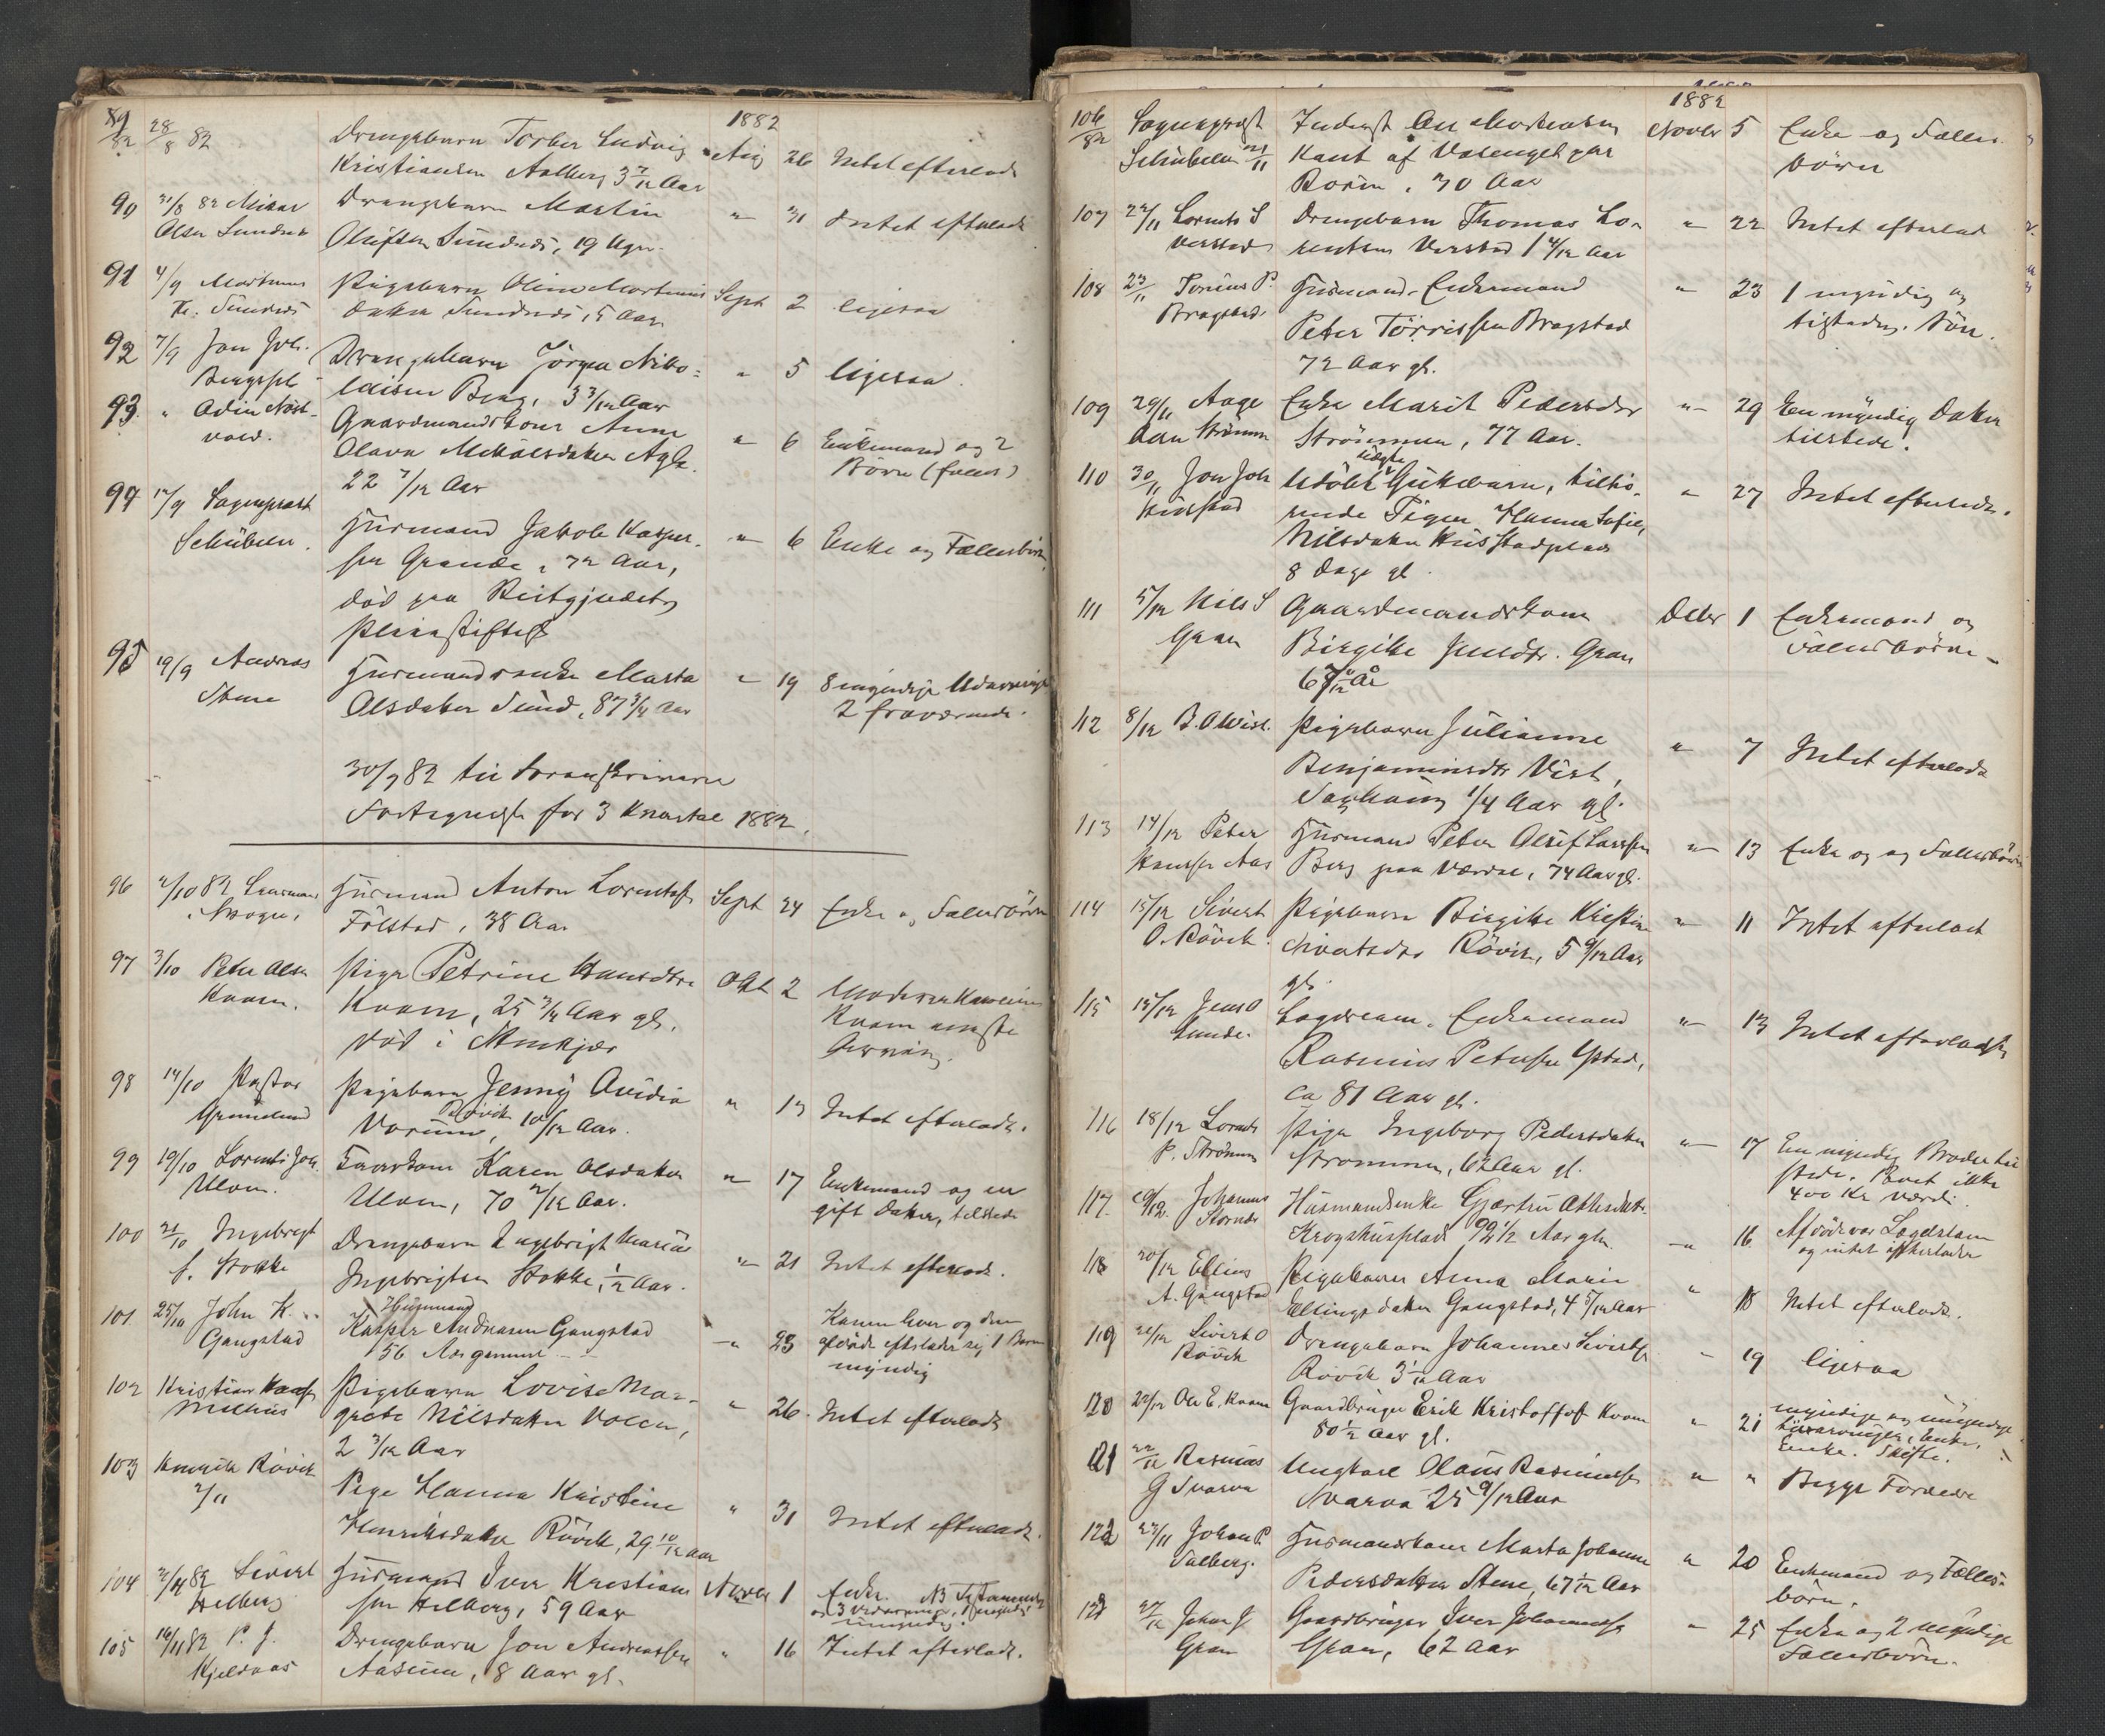 1882
89/82 28/8 82 Drengebarn Torber Ludvig Aug 26 Intet efterladt
Kristiansen Aalberg 3 7/12 Aar
90 31/8 82 Mikal Drengebarn Martin " 31 Intet efterladt
Olsen Sundnes Olufsen Sundnes, 19 Uger
91 4/9 Martinus Pigebarn Oline Martinus Sept 2 ligesaa
Kr. Sundnes datter Sundnes, 5 Aar
92 7/9 Jon Joh. Drengebarn Jørgen Niko= " 5 ligesaa
Bergspl laisen Berg, 3 3/12 Aar
93 " Odin Nord- Gaardmandskone Anne " 6 Enkemand og 2
vald. Olava Mikalsdatter Børn (fælles)
22 7/12 Aar
94 12/9 Sognepræst Husmand Jakob Kasper- " 6 Enke og Fællesbørn
Schübeler. sen Grande, 72 Aar,
død paa Reitgjædets
Pleiestiftelse
95 19/9 Andreas Husmandsenke Marta " 19 8 myndige Udarvinger
Stene Olsdatter Sund, 87 3/4 Aar 2 fraværende.
30/9 82 til Sorenskriveren
Fortegnelse for 3 Kvartal 1882.
96 2/10 82 Lensmand Husmand Anton Lorentsen Sept 24 Enke og Fællesbørn
i Skogn, Følstad, 38 Aar
97 3/10 Peter Olsen Pige Petrine Hansdtr Okt 2 Moderen
Kvam. Kvam, 25 3/4 Aar gl. Kvam eneste
død i Stenkjær Arving.
98 14/10 Pastor Pigebarn Jenny Ovidia " 13 Intet efterladt.
Grundlund Rødvik
Vorum, 10/12 Aar.
99 19/10 Lorents Joh. Føderkone Karen Olsdatter " 17 Enkemand og en
Ulven. Ulven, 70 2/12 Aar. gift Datter, tilstede
100 21/10 Ingebrigt Drengebarn Ingebrigt Marius " 21 Intet efterladt.
J. Stokke Ingebrigtsen Stokke, 1/2 Aar.
101 25/10 John K. Husmand Konen lever og den
Gangstad Kasper Andreasen Gangstad " 23 afdøde efterlader sig 1 Barn
56 Aar gammel myndig
102 Kristian Pigebarn Lovise Mar- " 26. Intet efterladt
Melhus grete Nilsdatter Volden,
2 3/12 Aar
103 Henrik Røvik Pige Hanna Kristine " 31 Intet efterladt.
2/11 Henriksdatter Røvik, 29 10/12 Aar
104 2/11 82 Sivert Husmand Iver Kristian Novbr 1 Enke NB Testamente
Helberg sen Helberg, 59 Aar og 3 Udarvinger, 1 myndig
umyndig.
105 16/11 82 P. J. Drengebarn Jon Andreassen " 16 Intet efterladt.
Kjeldaas Aasum, 8 Aar gl.
1882
106/82 Sognepræst Inderst Ole Mortensen Novbr 5 Enke og Fælles-
Schübeler 21/11 Kant af Vasenget paa børn
Borin, 70 Aar
107 22/11 Lorents S Drengebarn Thomas Lo- " 22 Intet efterladt
Verstad rentsen Verstad 1 4/12 Aar
108 23/11 Tonius P. Husmand, Enkemand " 23 1 myndig og
Bragstad. Peter Tørrissen Bragstad tilstedev. Søn.
72 Aar gl.
109 29/11 Aage Enke Marit Pedersdtr " 29 En myndig Datter
Strømmen Strømmen, 77 Aar. tilstede.
110 30/11 Jon Joh Udøbt uægte Guttebarn, tilhø- " 27 Intet efterladt.
Husstad rende Pigen Hanna Sofie
Nilsdatter Husstadplads
8 Dage gl.
111 5/12 Nils S Gaardmandskone Decbr 1 Enkemand og
Gran Birgitte Jensdtr. Gran Fællesbørn
112 8/12 B. O Vist. Pigebarn Julianne " 7 Intet efterladt
Benjaminsdtr Vist,
1/4 Aar gl.
113 14/12 Peter Husmand Peter Oluf Larssen " 13 Enke og og Fællesbørn
Hansen Aas Berg paa Værdal, 74 Aar gl.
114 15/12 Sivert Pigebarn Birgitte Kristine " 11 Intet efterladt
O. Røvik Sivertsdtr Røvik, 5 9/12 Aar
gl.
115 15/12 Jens O Logdelem, Enkemand " 13 Intet efterladt
Lunde. Rasmus Petersen Ystad,
ca 81 Aar gl.
116 18/12 Lorents Pige Ingeborg Pedersdatter " 17 En myndig Broder til
P. Strømmen Strømmen, 62 Aar gl. stede. Boet ikke
400 Kr værdi.
117. 19/12. Johannes Husmandsenke Gjertru " 16 Afdøde var Lægdslem
Stornæs Krogshusplads 92 1/2 Aar gln. og intet efterlader
118 20/12 Elling Pigebarn Anna Marie " 18 Intet efterladt.
A. Gangstad Ellingsdatter Gangstad, 4 5/12 Aar
119 21/12 Sivert O Drengebarn Johannes Sivertsen " 19 ligesaa
Røvik Røvik 3 1/12 Aar
120 22/12 Ole E. Kvam Gaardbruger Erik Kristoffersen Kvam " 21 myndige og umyndige
80 1/2 Aar gl. Enke. Skifte.
121 22/12 Rasmus Ungkarl Olaus Rasmussen " " Begge Forældre
G Svarva Svarva 25 9/12 Aar
122 22/11 Johan P. Husmandskone Marta Johanne " 20 Enkemand og Fælles-
Salberg. Pedersdatter Stene, 67 1/12 Aar børn.
123 27/12 Johan J. Gaardbruger Iver Johannessen " 25 Enke og 2 myndige
Gran Gran, 62 Aar Fællesbørn.